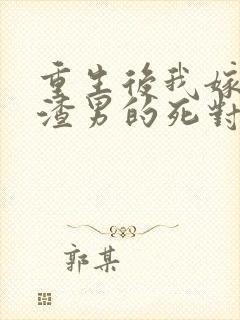 重生後我嫁
渣男的死對
郭某